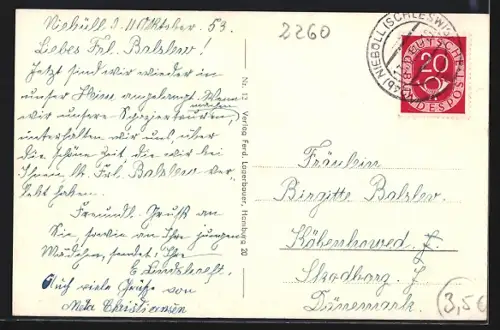 Niebüll d. 11. Oktober. 53.
Liebes Frl. Balzlev!
Jetzt sind wir wieder in
unser Heim angelangt. Wenn
wir unsere machen
unterhalten wir uns, über
die schöne Zeit, die wir bei
Ihnen lb. Frl. Balzlev ver-
lebt haben.
Freundl. Gruß an
Sie, sowie an Ihre jungen
Mädchen, sendet Ihre
E.
Auch viele Grüße von
Meta Christiansen
Nr. 12 Verlag Ferd. Lagerbauer, Hamburg 20
2260
NIEBÜLL (SCHLESWIG)
DEUTSCHE BUNDESPOST
20
Fräulein
Birgitte Balzlev.
Københowed. J.
Skodborg. J
Dänemark.
3,50